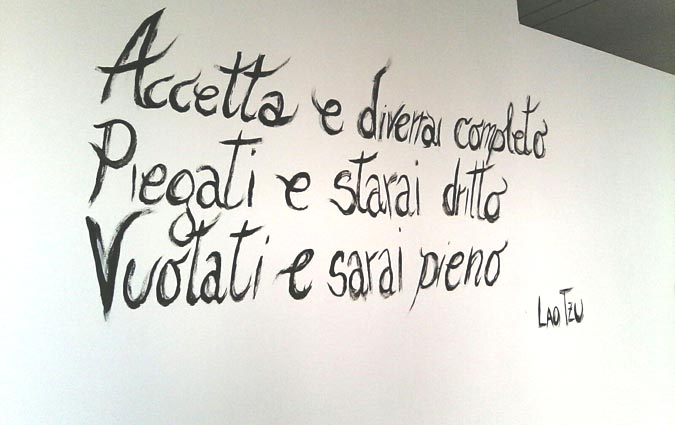 Accetta e diverrai completo
Piegati e starai dritto
Vuotati e sarai pieno
Lao Tzu